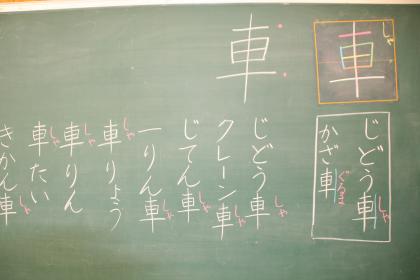 車
しゃ
車
じどう車
かざ車
ぐるま
じどう車
しゃ
クレーン車
しゃ
じてん車
しゃ
一りん車
しゃ
車りょう
しゃ
車りん
しゃ
車たい
しゃ
きかん車
しゃ